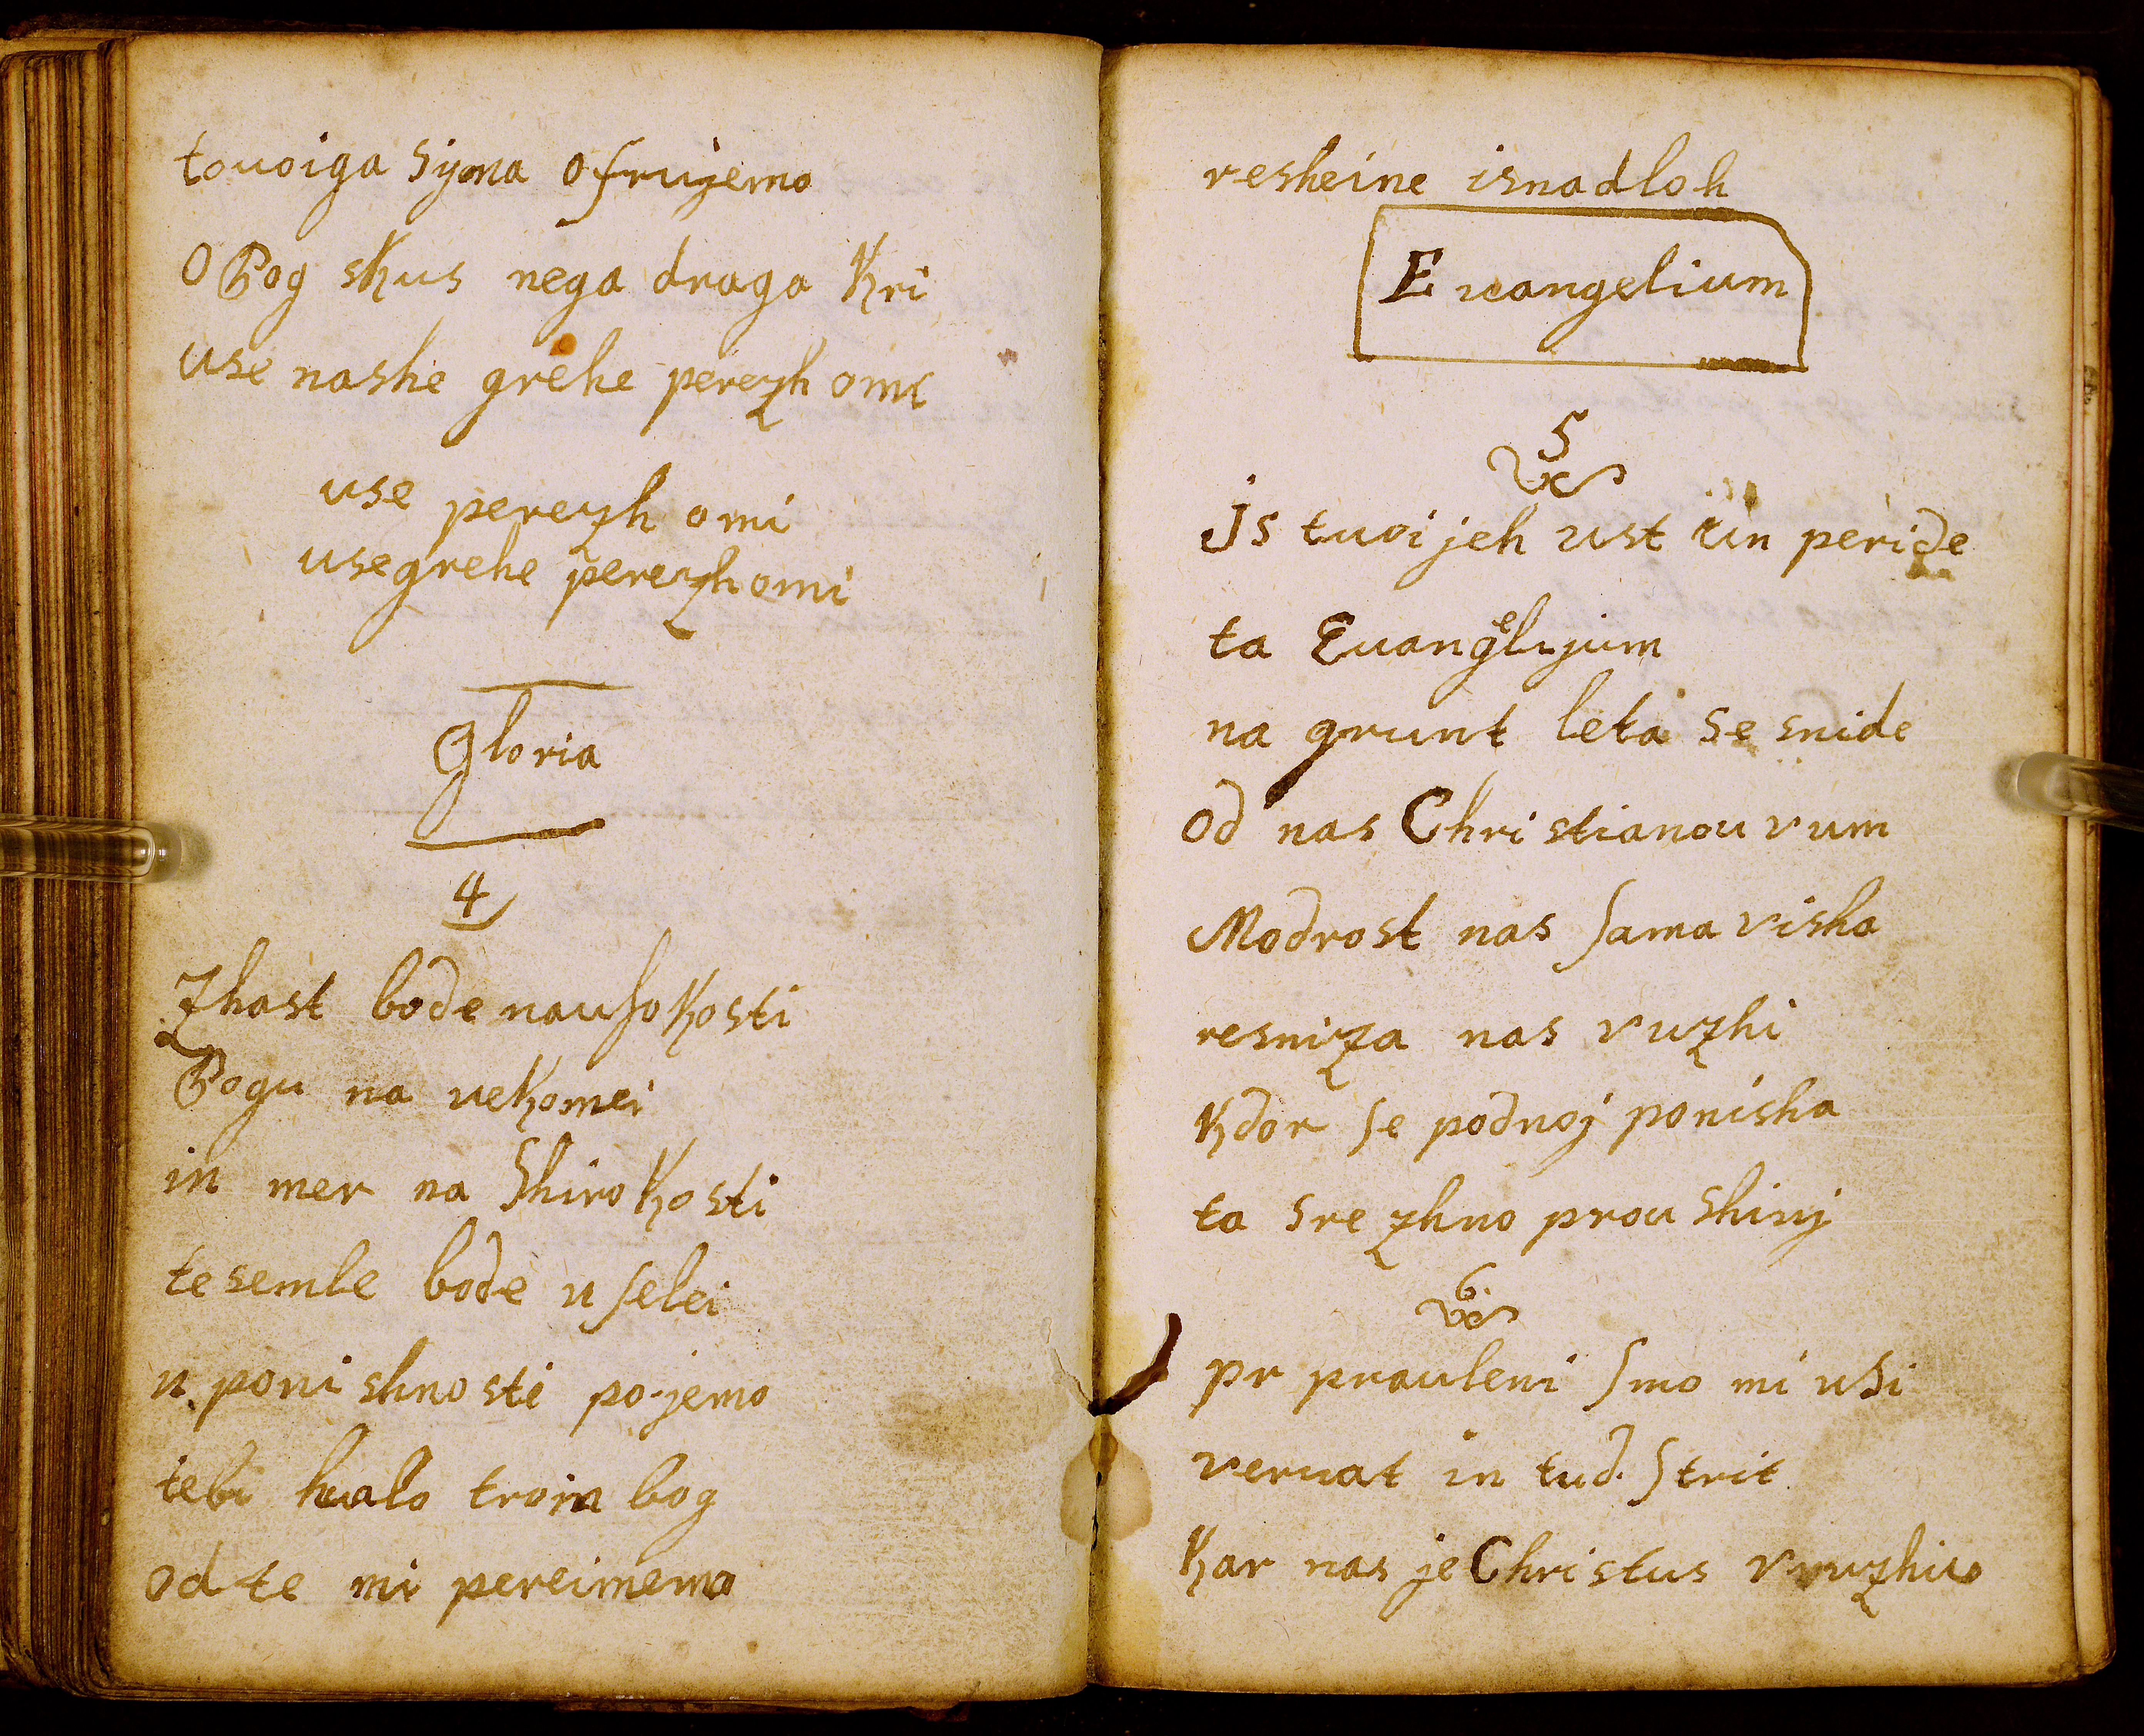 touoiga syna ofrujemo
O Bog skus nega draga Kri
use nashe grehe perezh omi
use perezh omi
use grehe perezh omi
Gloria
4
Zhast bode nausokosti
Bogu na vekomei
in mer na Shirokosti
te semle bode uselei
u poni shnosti pojemo
tebi hualo troin bog
od te mi pereimemo
resheine isnadloh
Euangelium
5
Js tuoijeh ust vün peride
ta Euangelijum
na grunt leta se snide
od nas Christianou vum
Modrost nas sama visha
resniza nas vuzhi
Kdor se podnoj ponisha
ta srezhno prou shivj
6
pr prauleni smo mi usi
veruat in tud. strit
Kar nas je Christus vvuzhiu